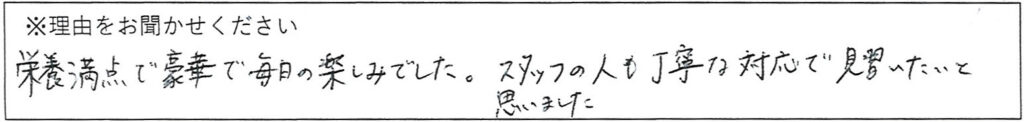 ※理由をお聞かせください
栄養満点で豪華で毎日の楽しみでした。スタッフの人も丁寧な対応で見習いたいと
思いました